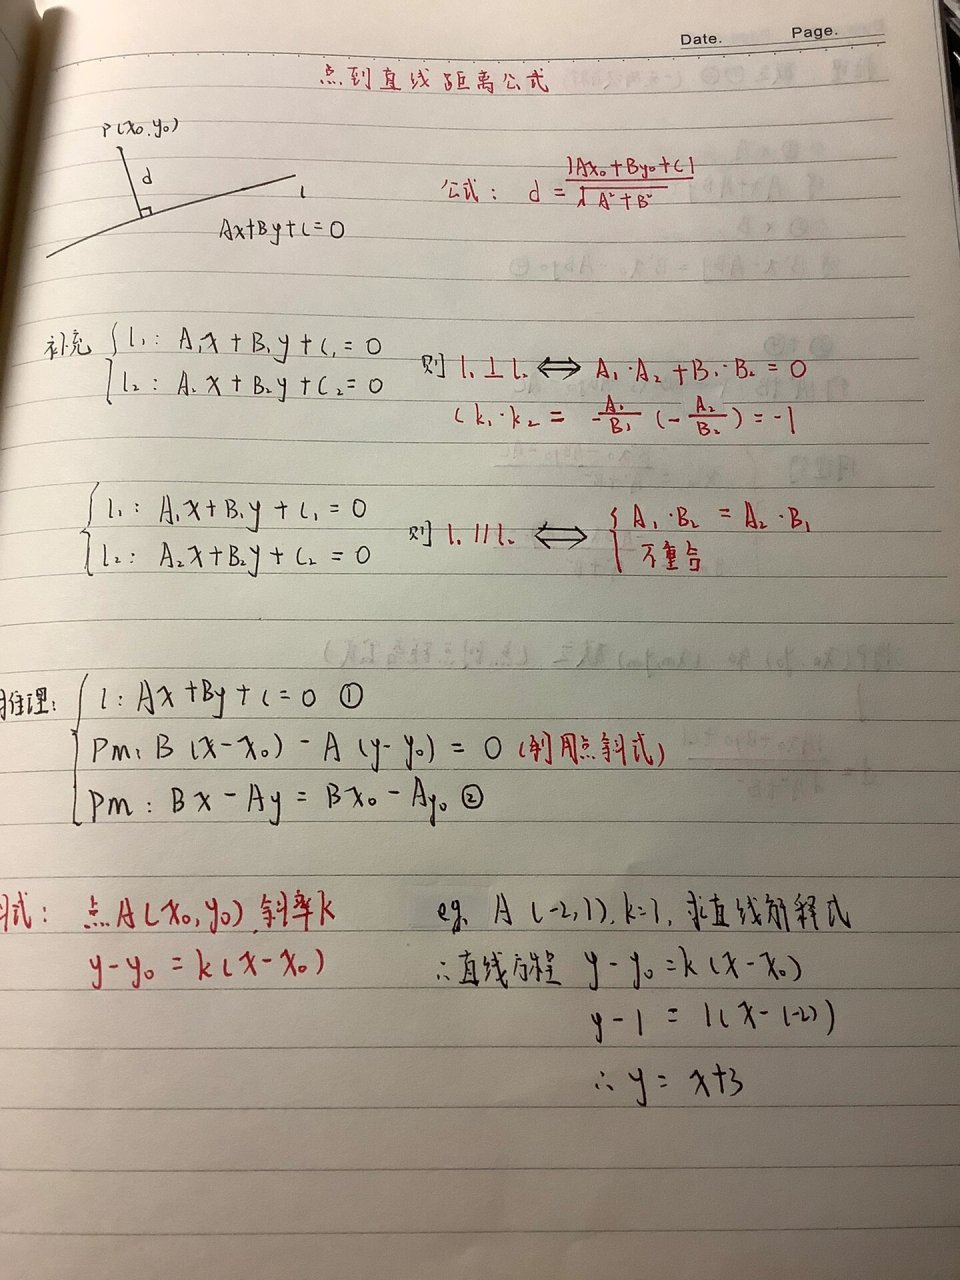 Date. Page.
点到直线距离公式
P(x₀.y₀)
d
l
Ax+By+C=0
公式: d = |Ax₀+By₀+C| / √A²+B²
补充 { l₁: A₁x+B₁y+C₁=0
l₂: A₂x+B₂y+C₂=0
则 l₁⊥l₂ ⟺ A₁·A₂+B₁·B₂=0
(k₁·k₂ = -A₁/B₁ (-A₂/B₂) = -1
{ l₁: A₁x+B₁y+C₁=0
l₂: A₂x+B₂y+C₂=0
则 l₁//l₂ ⟺ { A₁·B₂ = A₂·B₁
不重合
推理: { l: Ax+By+C=0 ①
Pm: B(x-x₀)-A(y-y₀)=0 (利用点斜式)
Pm: Bx-Ay=Bx₀-Ay₀ ②
式: 点A(x₀,y₀),斜率k
y-y₀=k(x-x₀)
eg. A(-2,1),k=1,求直线解释式
∴直线方程 y-y₀=k(x-x₀)
y-1 = 1(x-(-2))
∴ y= x+3